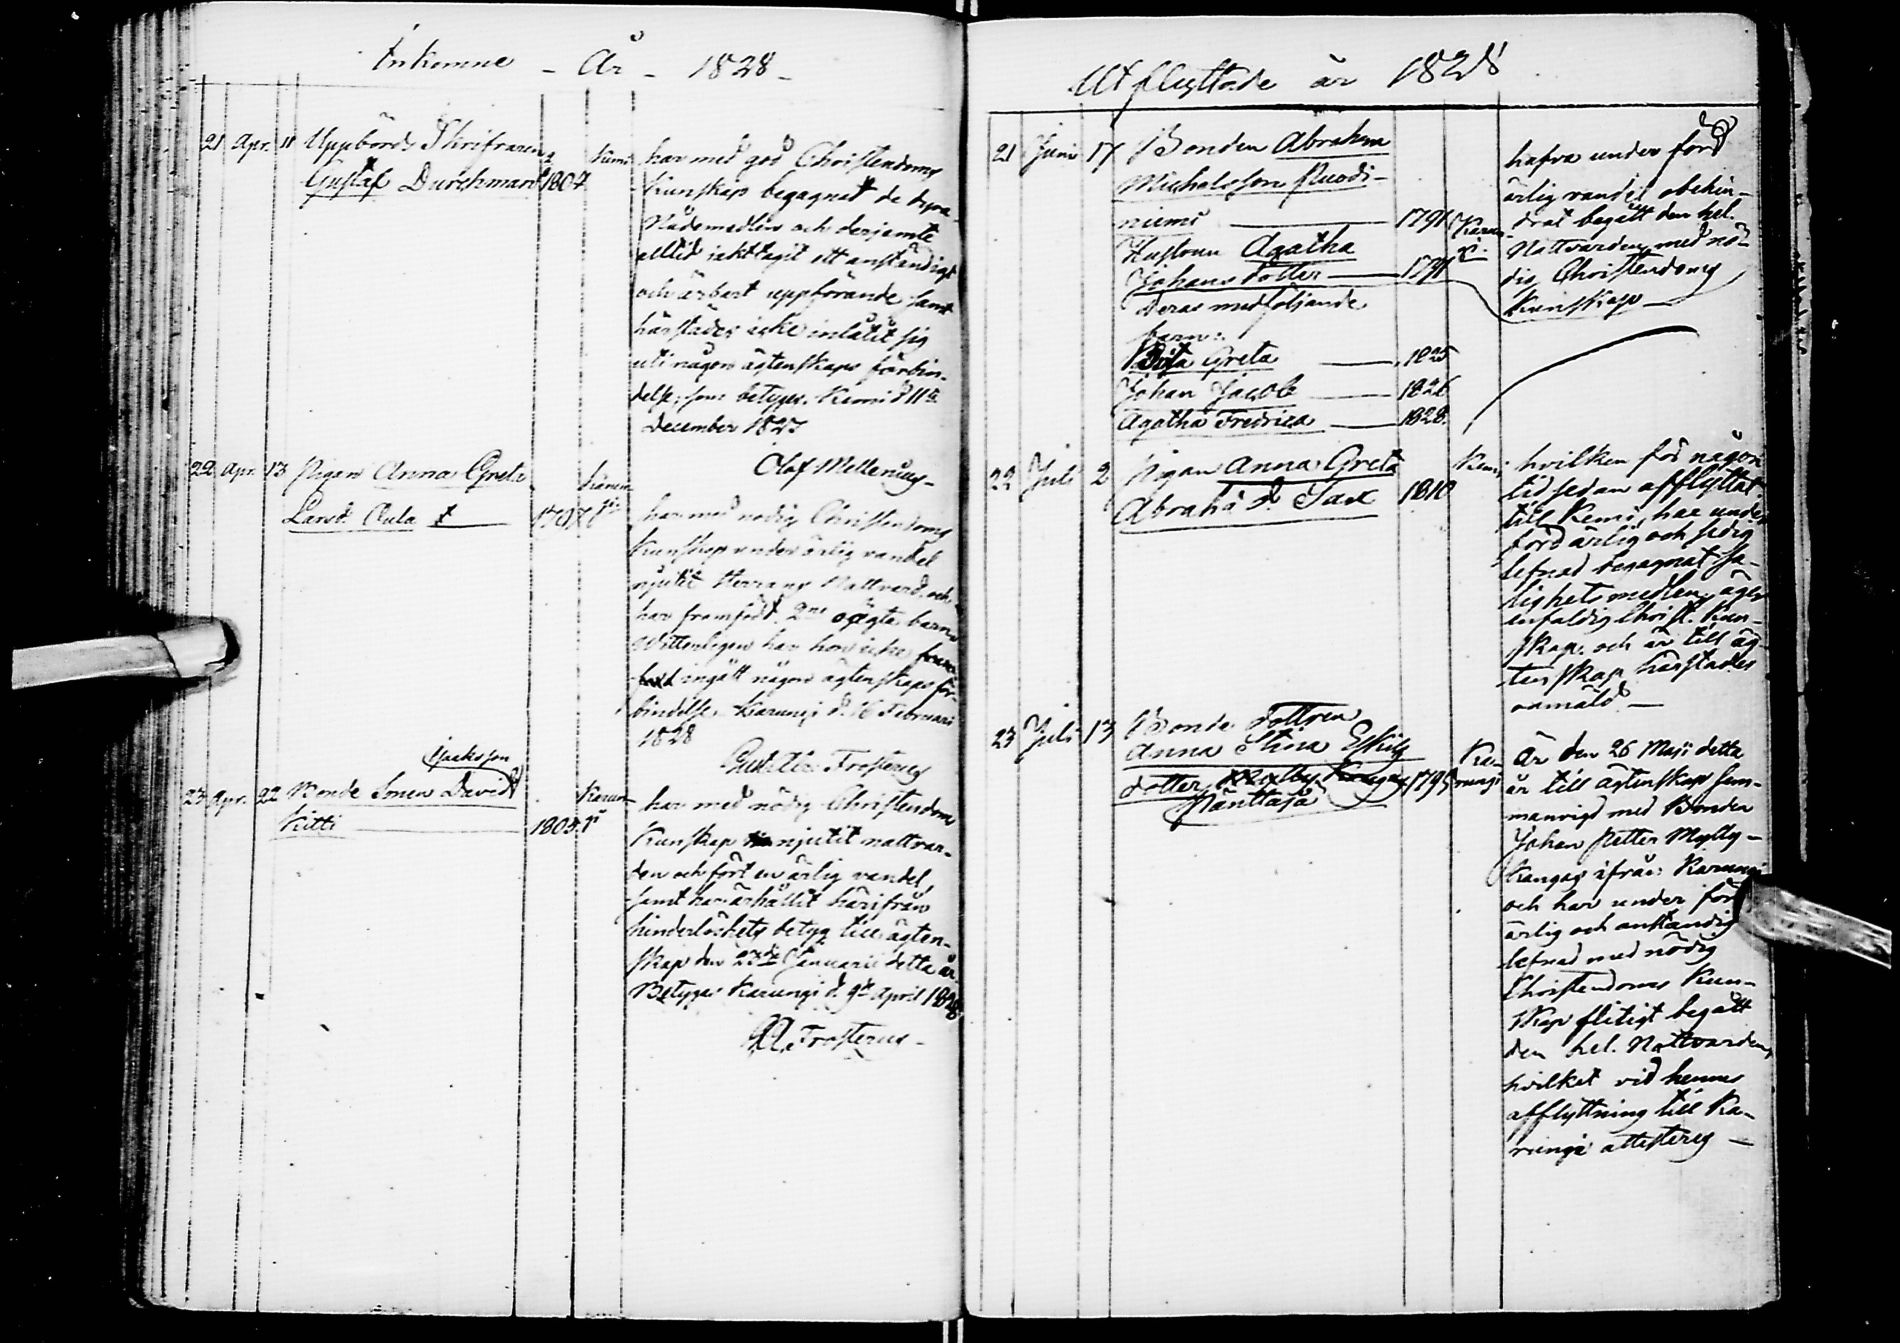 Inkomne - År - 1828 -
21 Apr. 11 Uppbörds Skrifvaren
Gustaf Durchman 1807 Kimi
har med god Christendoms
kunskap begagnat de dyra
Nådemedlen och derjemte
alltid iakttagit ett anständigt
och ärbart uppförande samt
härstädes icke inlåtit sig
uti någon ägtenskaps förbin-
delse; som betygas. Kemi d 11te
December 1827
Olof Mellenius -
22 Apr. 13 Pigan Anna Greta
Larsd. Oula 1797
har med nödig Christendoms
kunskap under ärlig vandel
njutit Herrans Nattvard, och
har framfödt 2ne oägta barn
Witterligen har hon icke
ingått någon ägtenskaps för-
bindelse. Karungi d. 16 Februari
1828
Frosterus
Isacksson
23 Apr. 22 Bonde Sonen David
Kitti 1805. Karun-
gi
har med nödig Christendoms
Kunskap njutit nattvar-
den och fört en ärlig vandel,
samt har ärhållit härifrån
hinderlöshets betyg till ägten-
skap den 23de Januarii detta år
Betygas Karungi d. 9de April 1828
Frosterus -
Utflyttade år 1828
21 Junii 17 Bonden Abraham
Michelsson Ruodi-
niemi 1791 Karun-
gi.
Hustrun Agatha
Johansdotter 1791
deras medföljande
barn:
Brita Greta 1825
Johan Jacob 1826
Agatha Fredrica 1828.
hafva under förd
ärlig vandel obehin-
drat begått den hel.
Nattvarden med nö-
dig Christendoms
Kunskap -
22 Juli 2 Pigan Anna Greta
Abrahá d. Sax 1810 Kemi
hvilken för någon
tid sedan afflyttat
till Kemi, har under
förd ärlig och sedig
lefnad begagnat Sa-
lighetsmedlen, äger
enfaldig Christ. Kun-
skap. och är till äg-
tenskap härstädes
oanmäld -
23 Juli 13 Bonde dottren
Anna Stina Eskils
dotter 1795 Ka-
rungi
Är den 26 Maji detta
år till ägtenskap sam-
manvigd med Bonden
Johan Petter Mylly-
kangas ifrån Karungi
och har under förd
ärlig och anständig
lefnad med nödig
Christendoms Kun-
skap flitigt begått
den hel. Nattvarden,
hvilket vid hennes
afflyttning till Ka-
rungi attesteras -